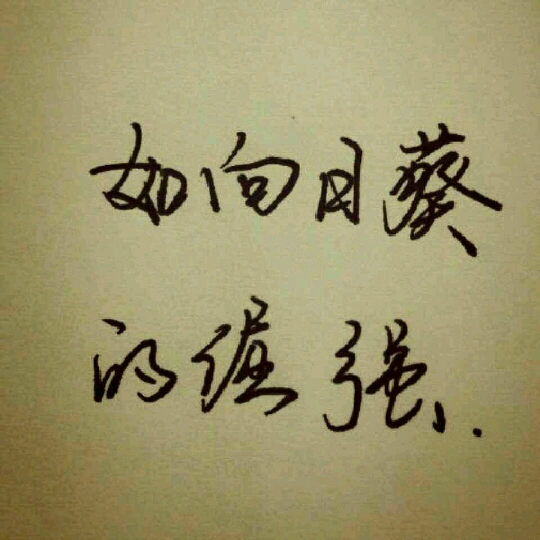 如向日葵
的倔强.